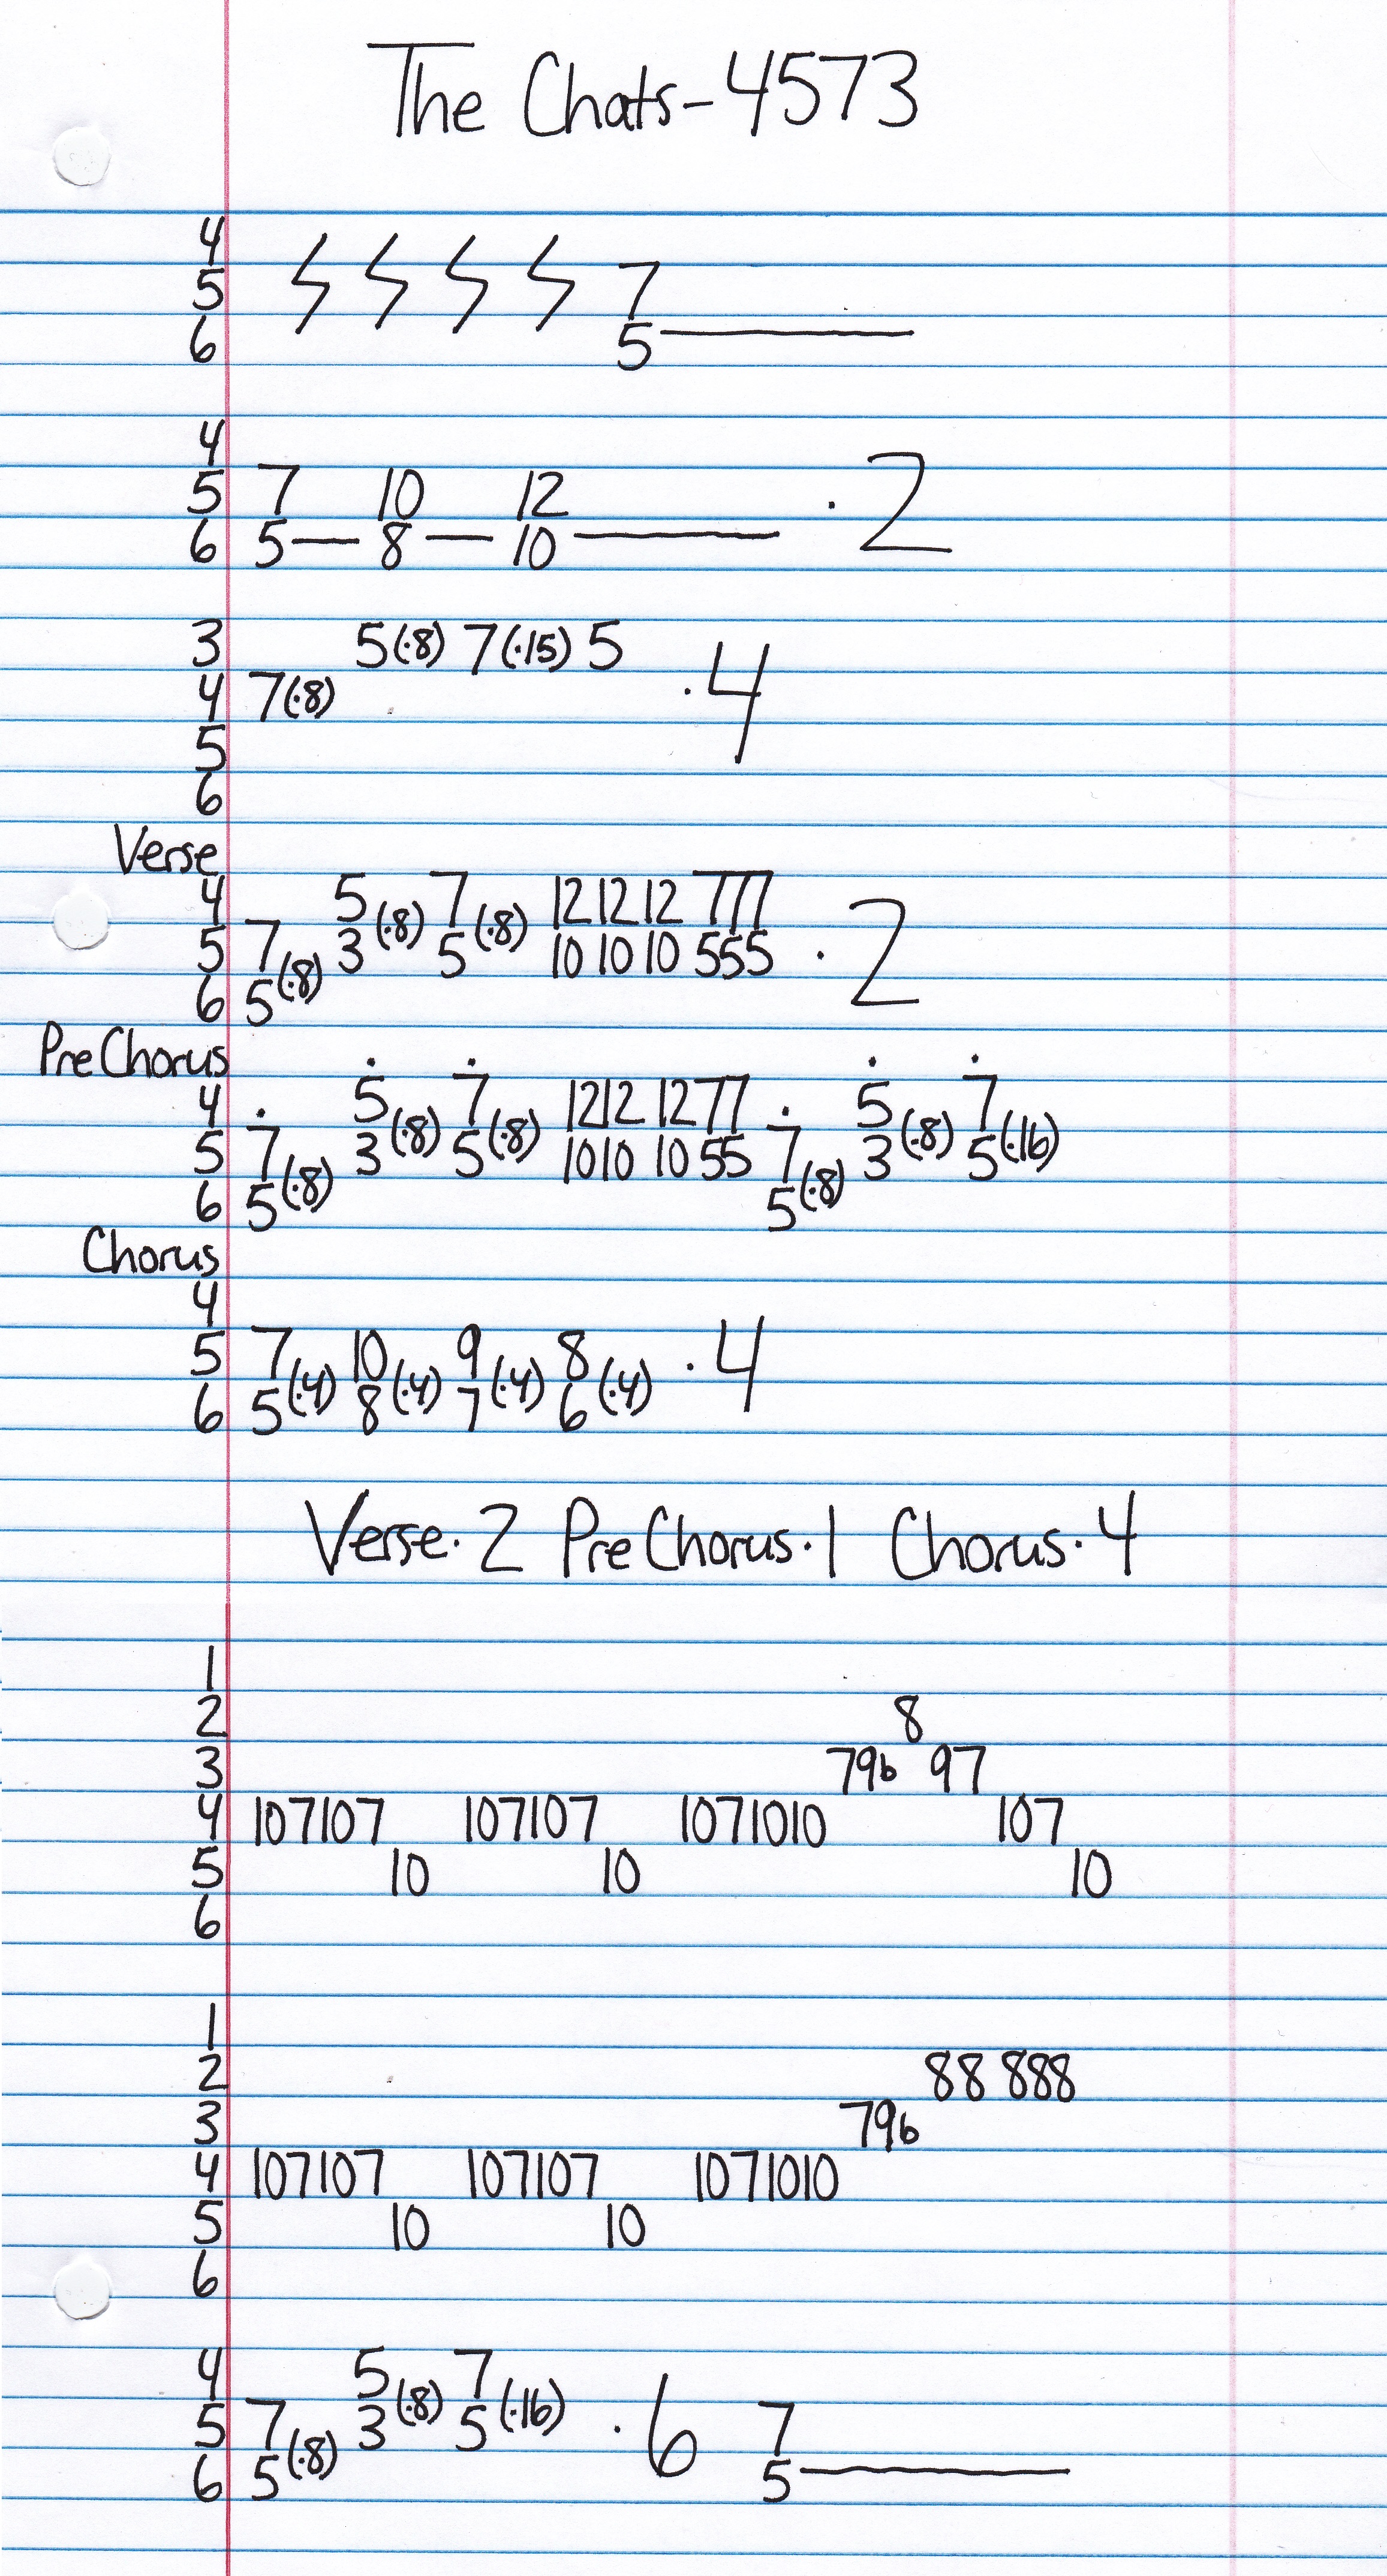 The Chats-4573
4
5 7
6 5
4
5 7 10 12 ·2
6 5— 8 — 10
3 5(·8) 7(·15) 5 ·4
4 7(·8)
5
6
Verse
4 5(·8) 7(·8) 12 12 12 777 ·2
5 7(·8) 3 5 10 10 10 555
6 5
PreChorus
4 5(·8) 7(·8) 12 12 12 77 5(·8) 7(·16)
5 7(·8) 3 5 10 10 10 55 7(·8) 3 5
6 5 5
Chorus
4
5 7(·4) 10(·4) 9(·4) 8(·4) ·4
6 5 8 7 6
Verse·2 PreChorus·1 Chorus·4
1
2 8
3 79b 97
4 107107 107107 1071010 107
5 10 10 10
6
1
2 88 888
3 79b
4 107107 107107 1071010
5 10 10
6
4 5(·8) 7(·16)
5 7(·8) 3 5 ·6 7
6 5 5